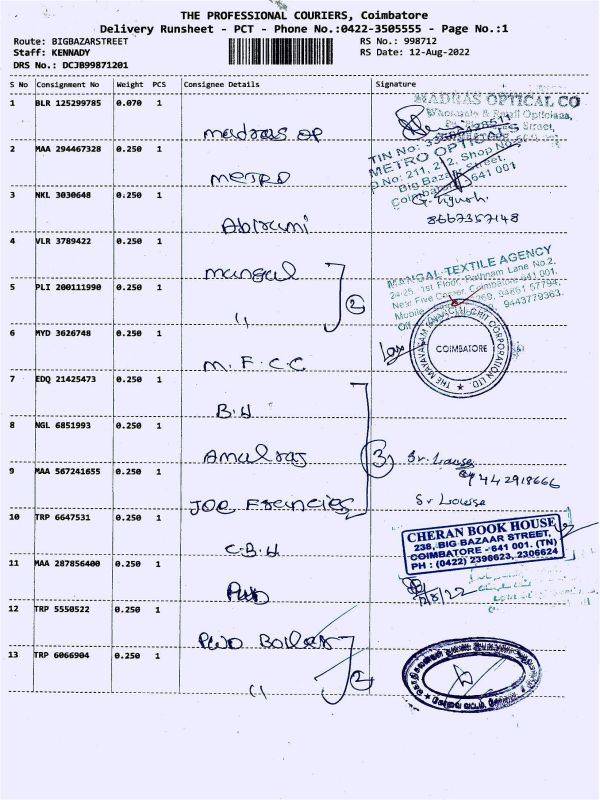 THE PROFESSIONAL COURIERS, Coimbatore
Delivery Runsheet - PCT - Phone No.:0422-3505555 - Page No.:1
Route: BIGBAZARSTREET RS No.: 998712
Staff: KENNADY RS Date: 12-Aug-2022
DRS No.: DCJB99871201
S No Consignment No Weight PCS Consignee Details Signature
1 BLR 125299785 0.070 1
madras op
MADRAS OPTICAL CO
Wholesale & Retail Opticians,
Street,
2 MAA 294467328 0.250 1
METRO
TIN No:
METRO OPTICALS
D.No: 211, 212, Shop No.
Big Bazaar Street,
Coimbatore - 641 001
3 NKL 3030648 0.250 1
Abirami
8667357148
4 VLR 3789422 0.250 1
mangal
MANGAL TEXTILE AGENCY
24-25, 1st Floor, Rathnam Lane No.2,
Near Five Corner, Coimbatore-641 001.
Mobile 94861 57794,
Off 9443779363.
5 PLI 200111990 0.250 1
" 2
6 MYD 3626748 0.250 1
M.F.C.C
COIMBATORE
7 EDQ 21425473 0.250 1
B.H
8 NGL 6851993 0.250 1
Amulraj 3
9 MAA 567241655 0.250 1
9442918666
JOE Francies
10 TRP 6647531 0.250 1
C.B.H
CHERAN BOOK HOUSE
238, BIG BAZAAR STREET,
COIMBATORE - 641 001. (TN)
PH : (0422) 2396623, 2306624
11 MAA 287856400 0.250 1
PWD
12 TRP 5550522 0.250 1
PWD
13 TRP 6066904 0.250 1
" 2